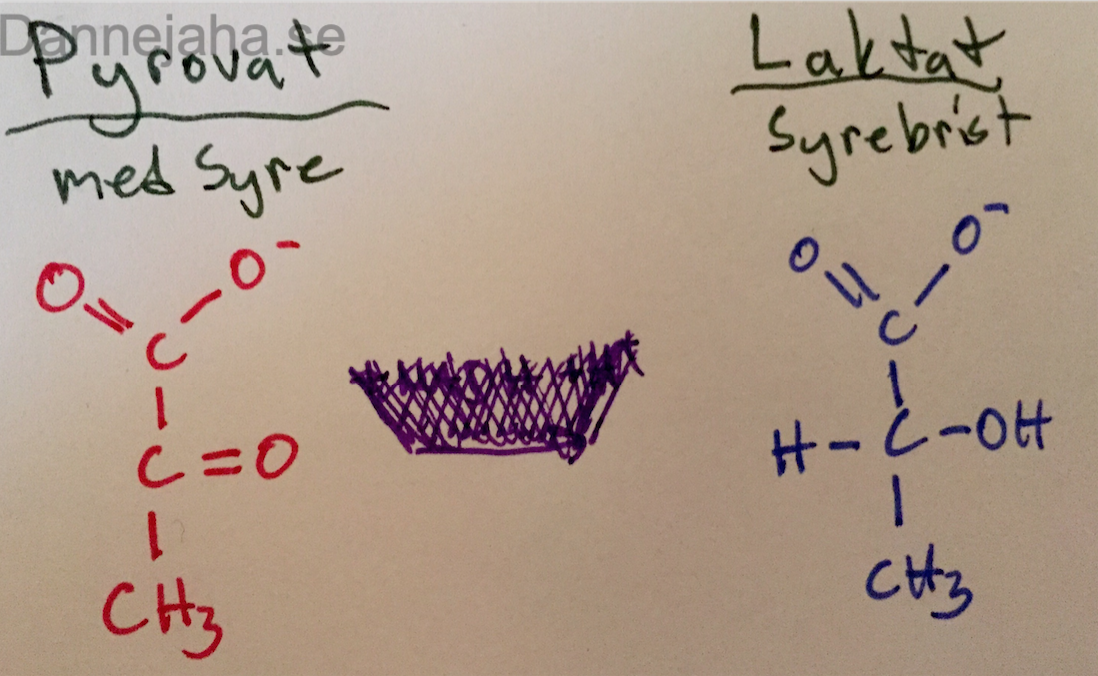 Dannejaha.se
Pyrovat
med Syre
O O⁻
C
C=O
CH3
Laktat
Syrebrist
O O⁻
C
H-C-OH
CH3